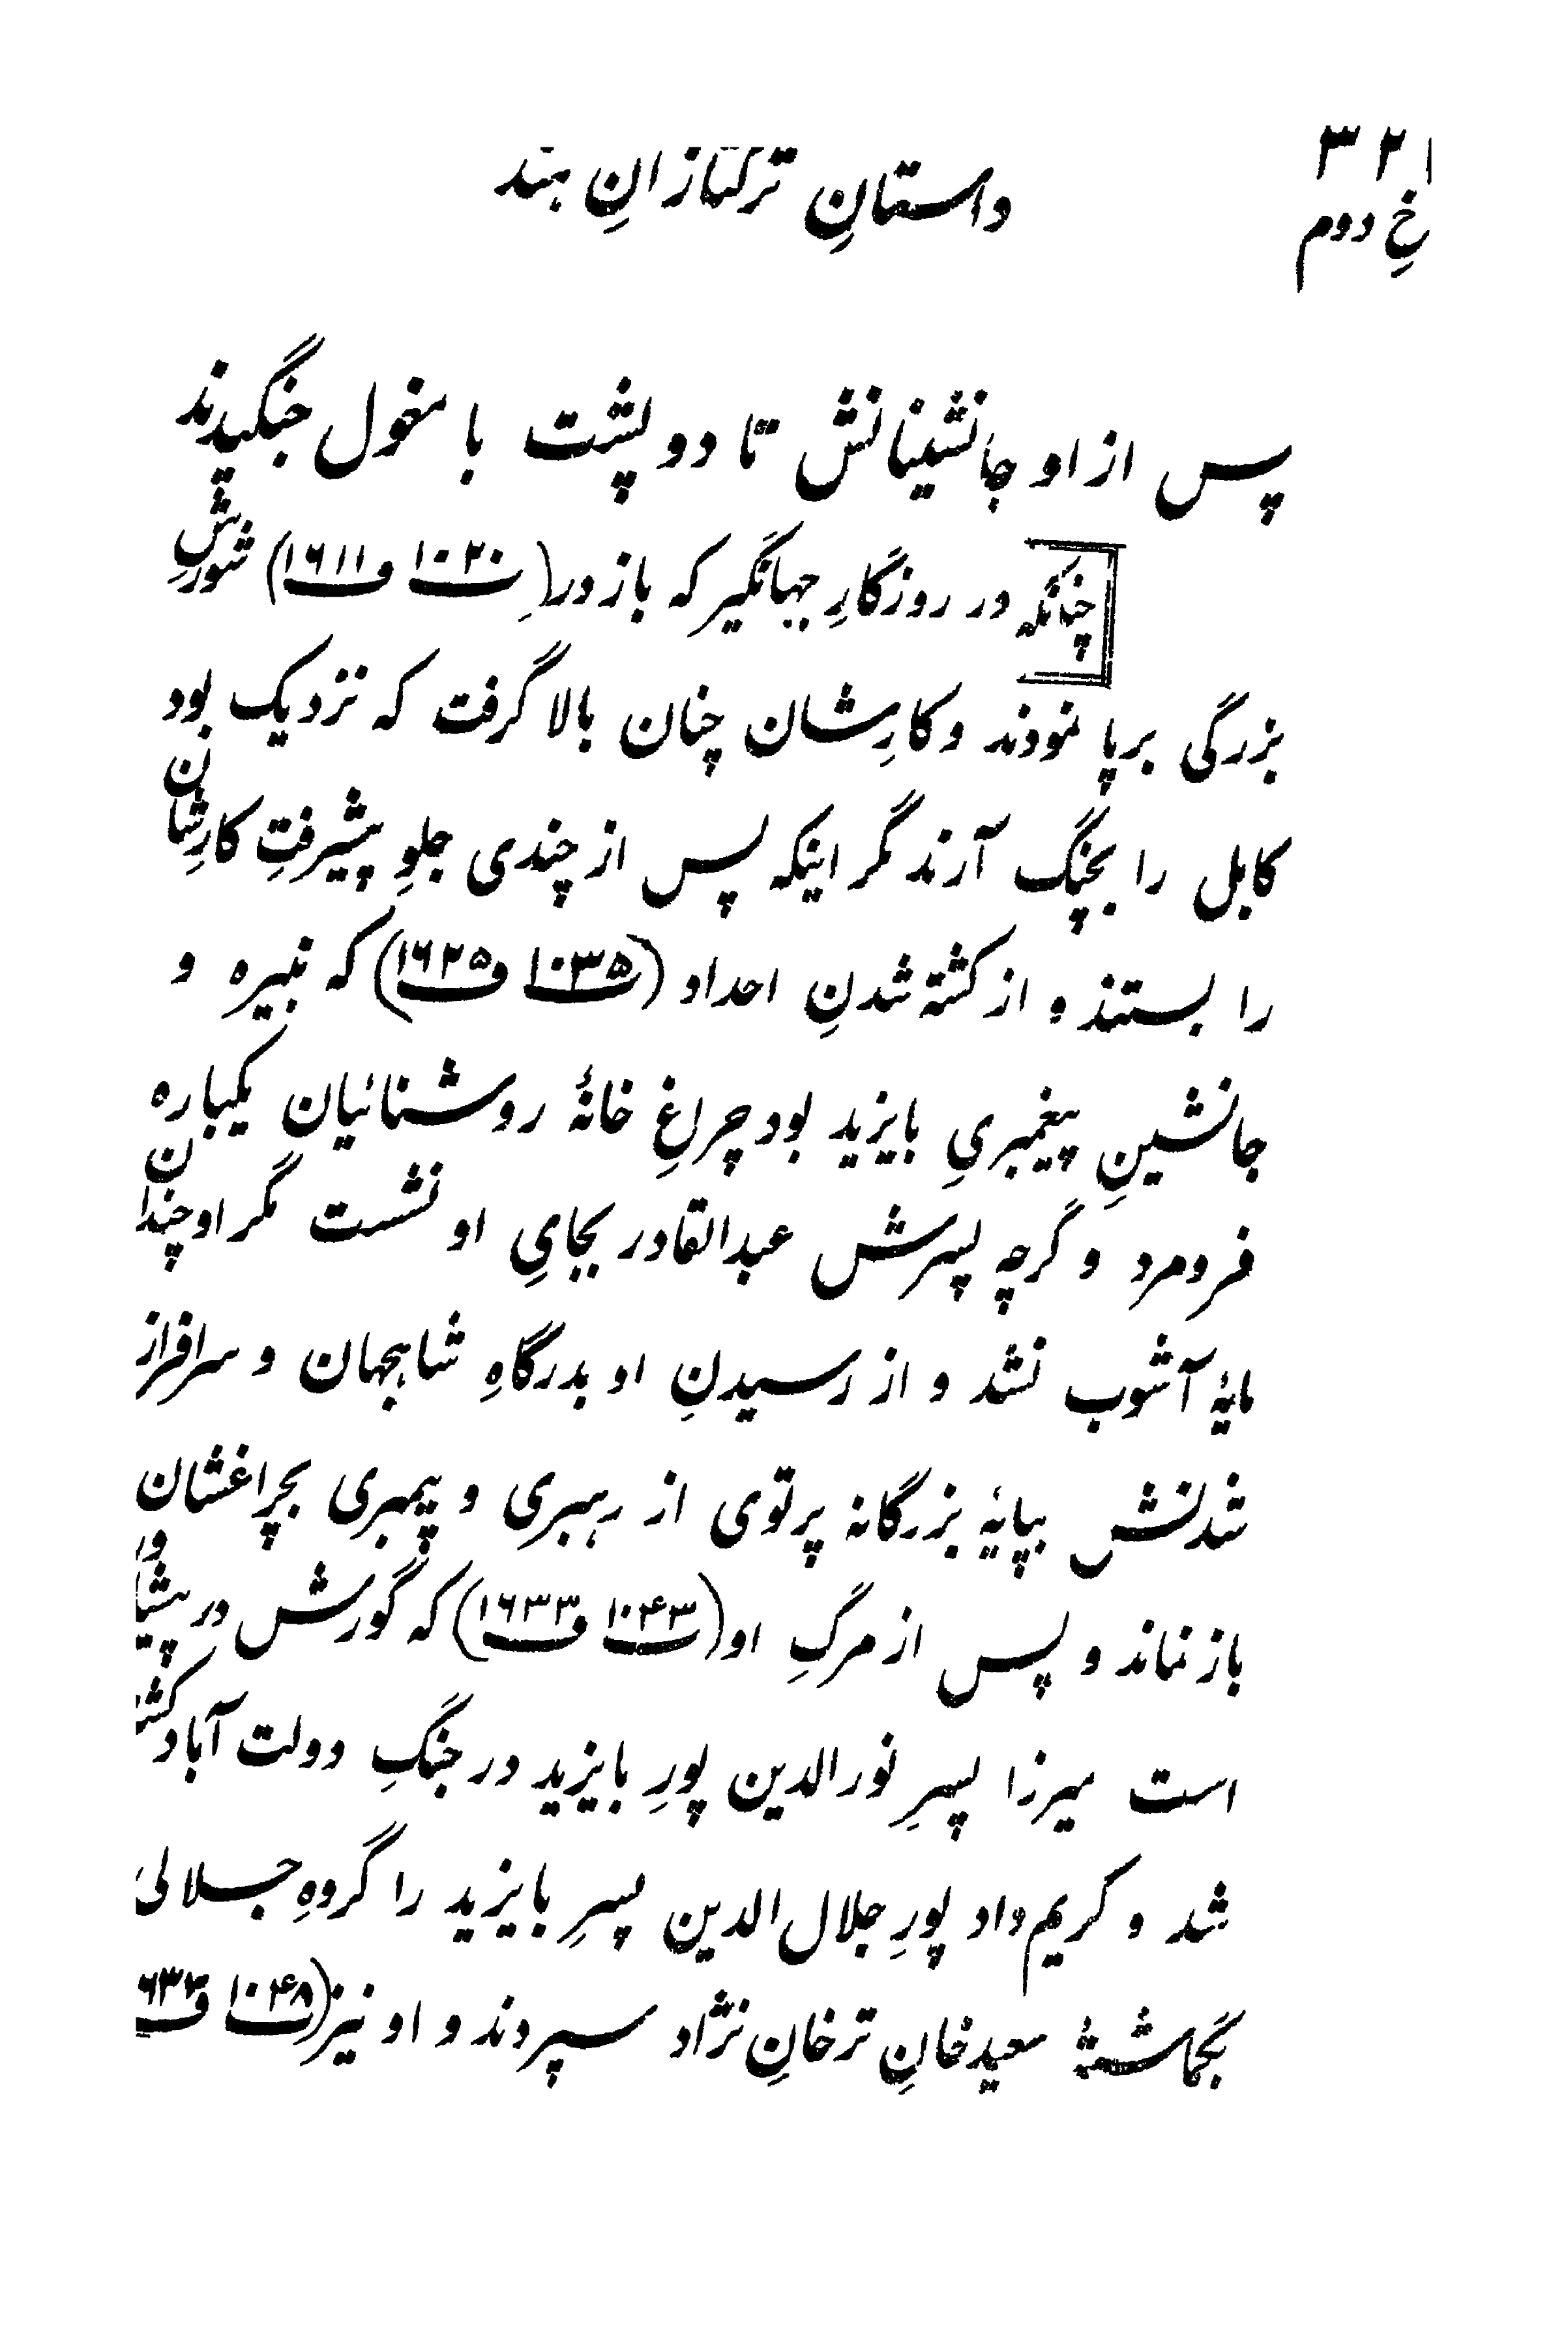 ۳۲۱
داستانِ ترکتازانِ هند
رخِ دوم
پس از او جانشینانش تا دو پشت با مغول جنگیدند
چنانکه در روزگارِ جهانگیر که باز در (۱۰۲۰ ۱۶۱۱) شورشِ
بزرگی برپا نمودند و کارِشان چنان بالا گرفت که نزدیک بود
کابل را بچنگ آرند مگر اینکه پس از چندی جلوِ پیشرفتِ کارِشان
را بستند و از کشته شدنِ احداد (۱۰۳۵ ۱۶۲۵) که نبیره و
جانشینِ پیغمبریِ بایزید بود چراغِ خانهٔ روشنائیان یکباره
فرو مرد و گرچه پسرش عبدالقادر بجایِ او نشست مگر او چندان
مایهٔ آشوب نشد و از رسیدنِ او بدرگاهِ شاهجهان و سرافراز
شدنش بپایهٔ بزرگانه پرتوی از رهبری و پیمبری بچراغشان
باز نماند و پس از مرگِ او (۱۰۴۳ ۱۶۳۳) که گورش در پیشاور
است میرزا پسرِ نورالدین پورِ بایزید در جنگِ دولت آباد
شد و کریم داد پورِ جلال الدین پسرِ بایزید را گروهِ جلالی
بگماشتهٔ سعید خانِ ترخانِ نژاد سپردند و او نیز (۱۰۴۸